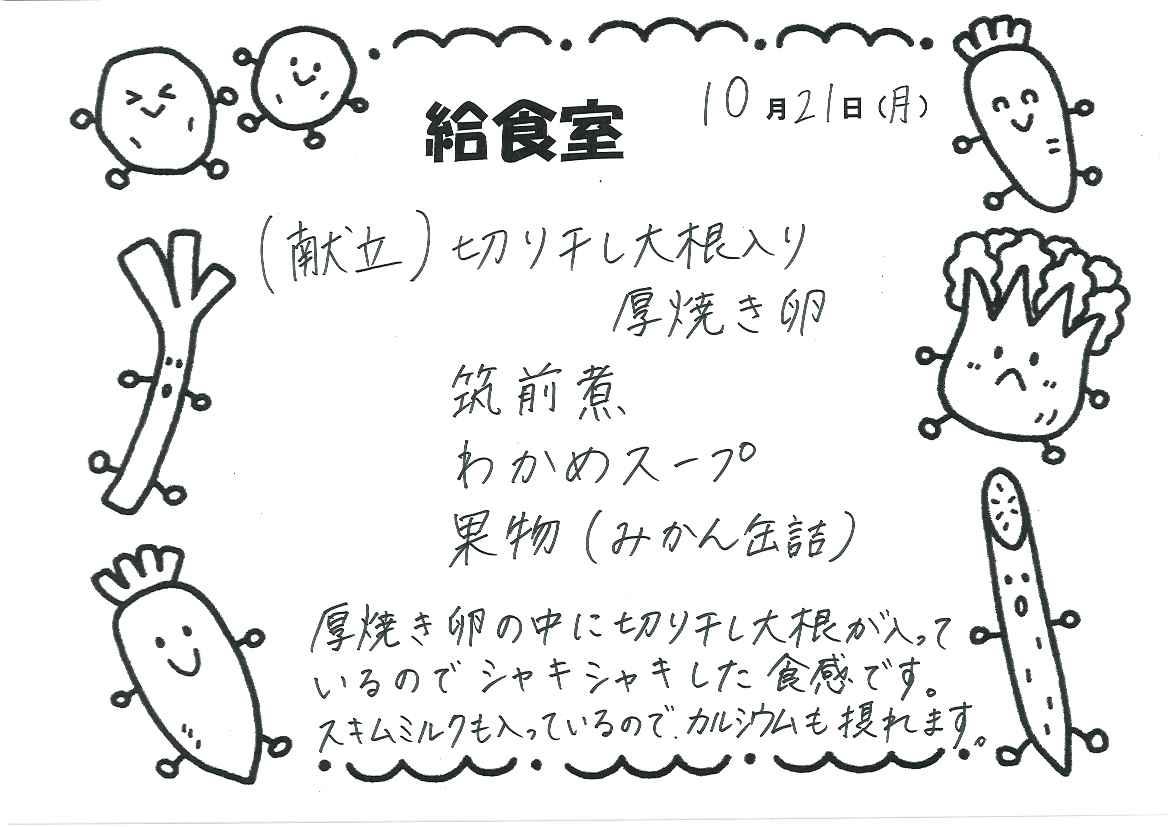 給食室
10月21日(月)
(献立)切り干し大根入り
厚焼き卵
筑前煮
わかめスープ
果物(みかん缶詰)
厚焼き卵の中に切り干し大根が入って
いるのでシャキシャキした食感です。
スキムミルクも入っているので、カルシウムも摂れます。